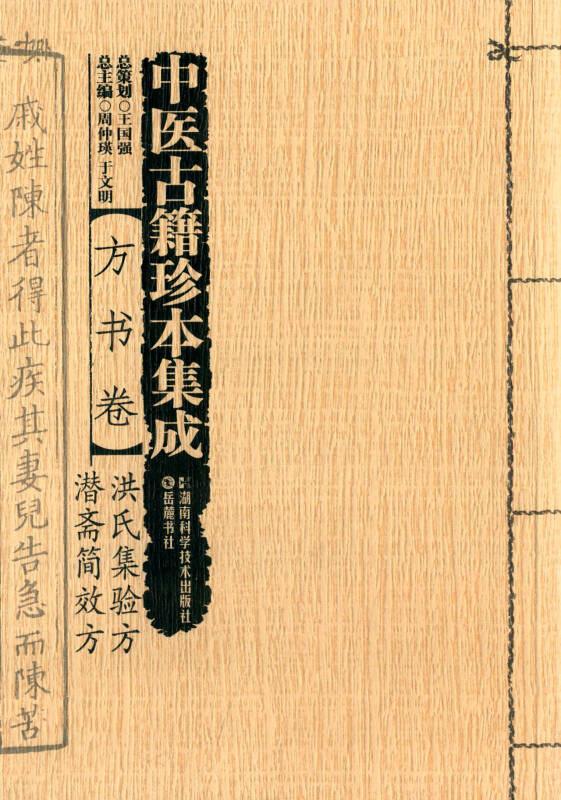 中医古籍珍本集成
湖南科学技术出版社
岳麓书社
总策划○王国强
总主编○周仲瑛 于文明
【方书卷】
洪氏集验方
潜斋简效方
戚姓陳者得此疾其妻兒告急而陳苦